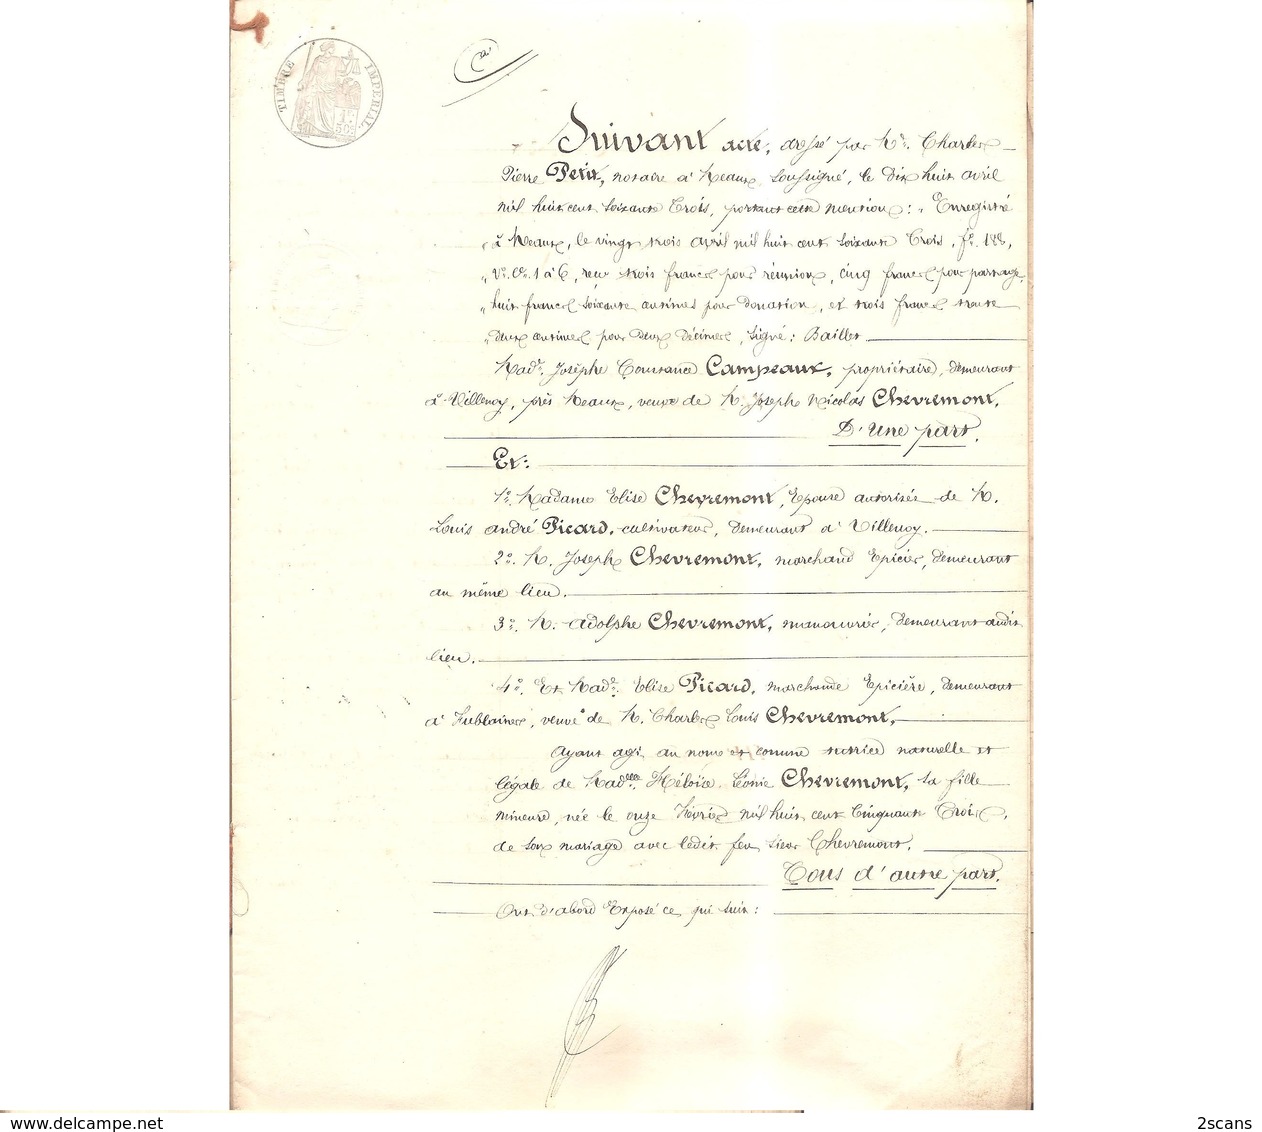 TIMBRE IMPERIAL
1F.
50c.
Suivant acte, dressé par Me. Charles
Pierre Petit, notaire à Meaux, soussigné, le dix huit avril
mil huit cent soixante trois, portant cette mention : " Enregistré
" à Meaux, le vingt trois avril mil huit cent soixante trois, fo. 188,
" Vo. Cs. 1 à 6, reçu trois francs pour réunion, cinq francs pour partage,
" huit francs soixante centimes pour donation, et trois francs trente
" deux centimes pour deux décimes, signé : Baillet
Made. Josèphe Constance Campeaux, propriétaire, demeurant
à Villenoy, près Meaux, veuve de M. Joseph Nicolas Chevremont,
D'une part.
Et :
1o. Madame Elise Chevremont, Epouse autorisée de M.
Louis André Picard, cultivateur, demeurant à Villenoy.
2o. M. Joseph Chevremont, marchand Epicier, demeurant
au même lieu.
3o. M. Adolphe Chevremont, manouvrier, demeurant audit
lieu.
4o. Et Made. Elise Picard, marchande Epicière, demeurant
à Fublaines, veuve de M. Charles Louis Chevremont,
Ayant agi au nom et comme tutrice naturelle et
légale de Madelle. Héloïse Léonie Chevremont, sa fille
mineure, née le onze février mil huit cent cinquante trois,
de son mariage avec ledit feu sieur Chevremont.
Tous d'autre part.
Ont d'abord Exposé ce qui suit :
2scans